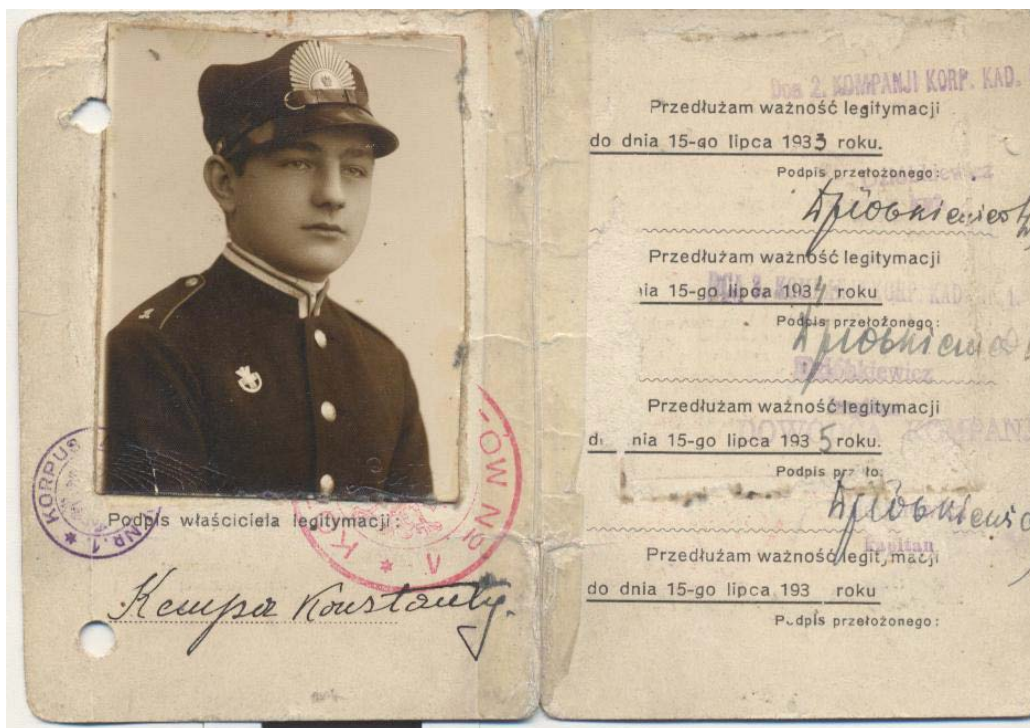 KORPUS
NR. 1
ÓW NR
Podpis właściciela legitymacji:
Kempa Konstanty.
Dca 2. KOMPANJI KORP. KAD.
Przedłużam ważność legitymacji
do dnia 15-go lipca 1933 roku.
Podpis przełożonego:
Dziobkiewicz
Przedłużam ważność legitymacji
nia 15-go lipca 1934 roku
KORP. KAD.
Podpis przełożonego:
Dziobkiewicz
Przedłużam ważność legitymacji
d nia 15-go lipca 1935 roku.
DOWÓDCA KOMPANJ
Podpis prz ło
Dziobkiewic
kapitan
Przedłużam ważność legit,macji
do dnia 15-go lipca 193 roku
Podpis przełożonego: